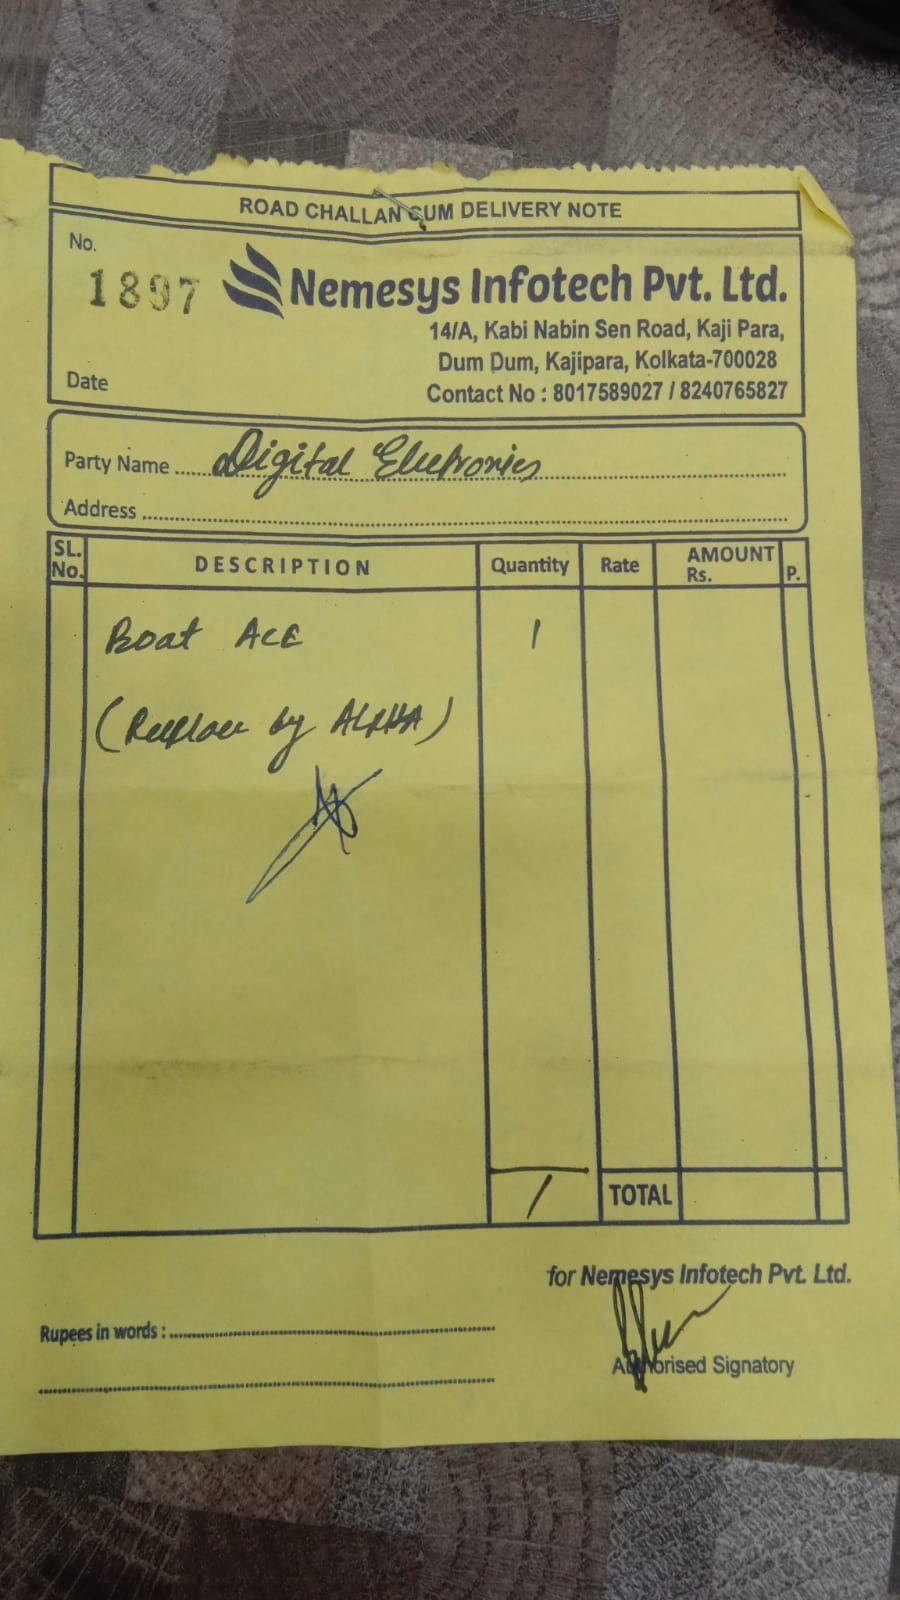 ROAD CHALLAN CUM DELIVERY NOTE
No.
1897
Nemesys Infotech Pvt. Ltd.
14/A, Kabi Nabin Sen Road, Kaji Para,
Dum Dum, Kajipara, Kolkata-700028
Date
Contact No : 8017589027 / 8240765827
Party Name Digital Electronics
Address
SL. No. DESCRIPTION Quantity Rate AMOUNT Rs. P.
Boat ACE 1
(Replace by ALPHA)
1 TOTAL
for Nemesys Infotech Pvt. Ltd.
Rupees in words :
Authorised Signatory